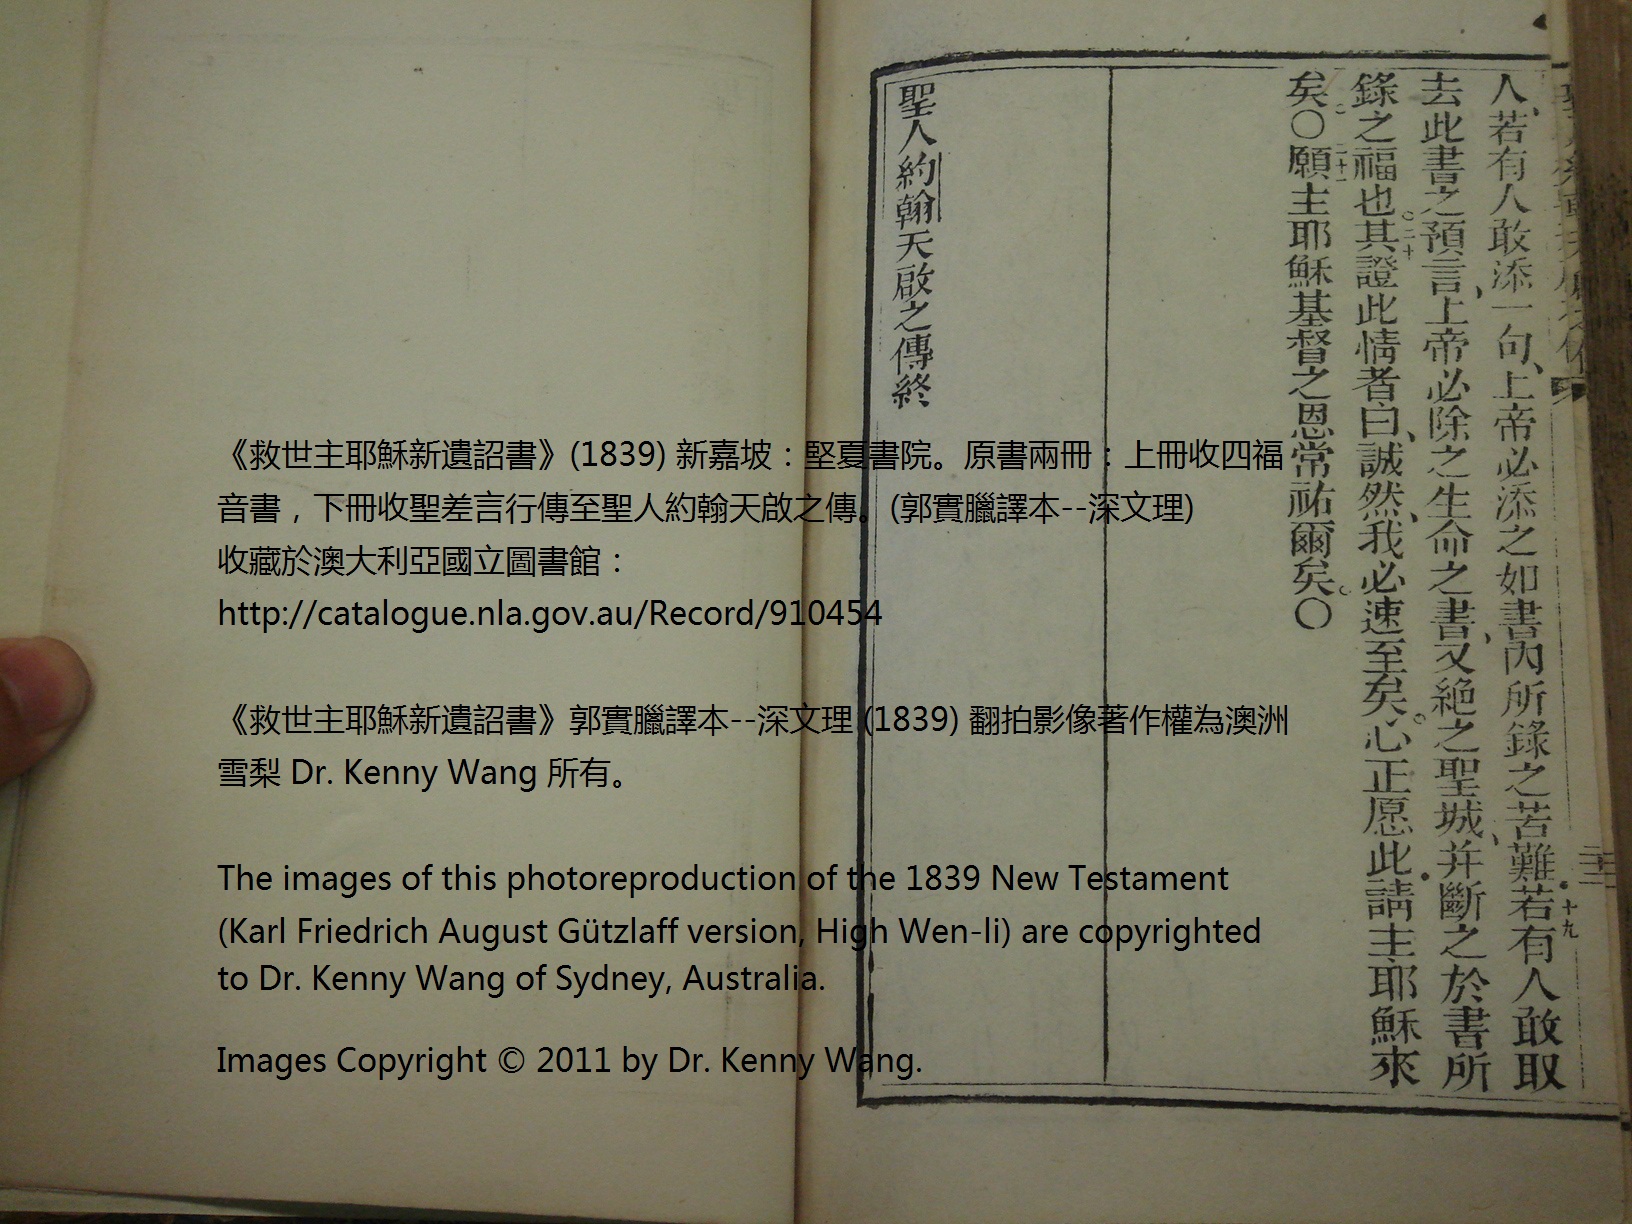 人、若有人敢添一句、上帝必添之如書內所錄之苦難•十九若有人敢取
去此書之預言、上帝必除之生命之書、又絕之聖城、并斷之於書所
錄之福也○二十其證此情者曰、誠然、我必速至矣○心正愿此•請主耶穌來
矣○二十一願主耶穌基督之恩常祐爾矣○
聖人約翰天啟之傳終
《救世主耶穌新遺詔書》(1839) 新嘉坡：堅夏書院。原書兩冊：上冊收四福
音書，下冊收聖差言行傳至聖人約翰天啟之傳。(郭實臘譯本--深文理)
收藏於澳大利亞國立圖書館：
http://catalogue.nla.gov.au/Record/910454
《救世主耶穌新遺詔書》郭實臘譯本--深文理 (1839) 翻拍影像著作權為澳洲
雪梨 Dr. Kenny Wang 所有。
The images of this photoreproduction of the 1839 New Testament
(Karl Friedrich August Gützlaff version, High Wen-li) are copyrighted
to Dr. Kenny Wang of Sydney, Australia.
Images Copyright © 2011 by Dr. Kenny Wang.